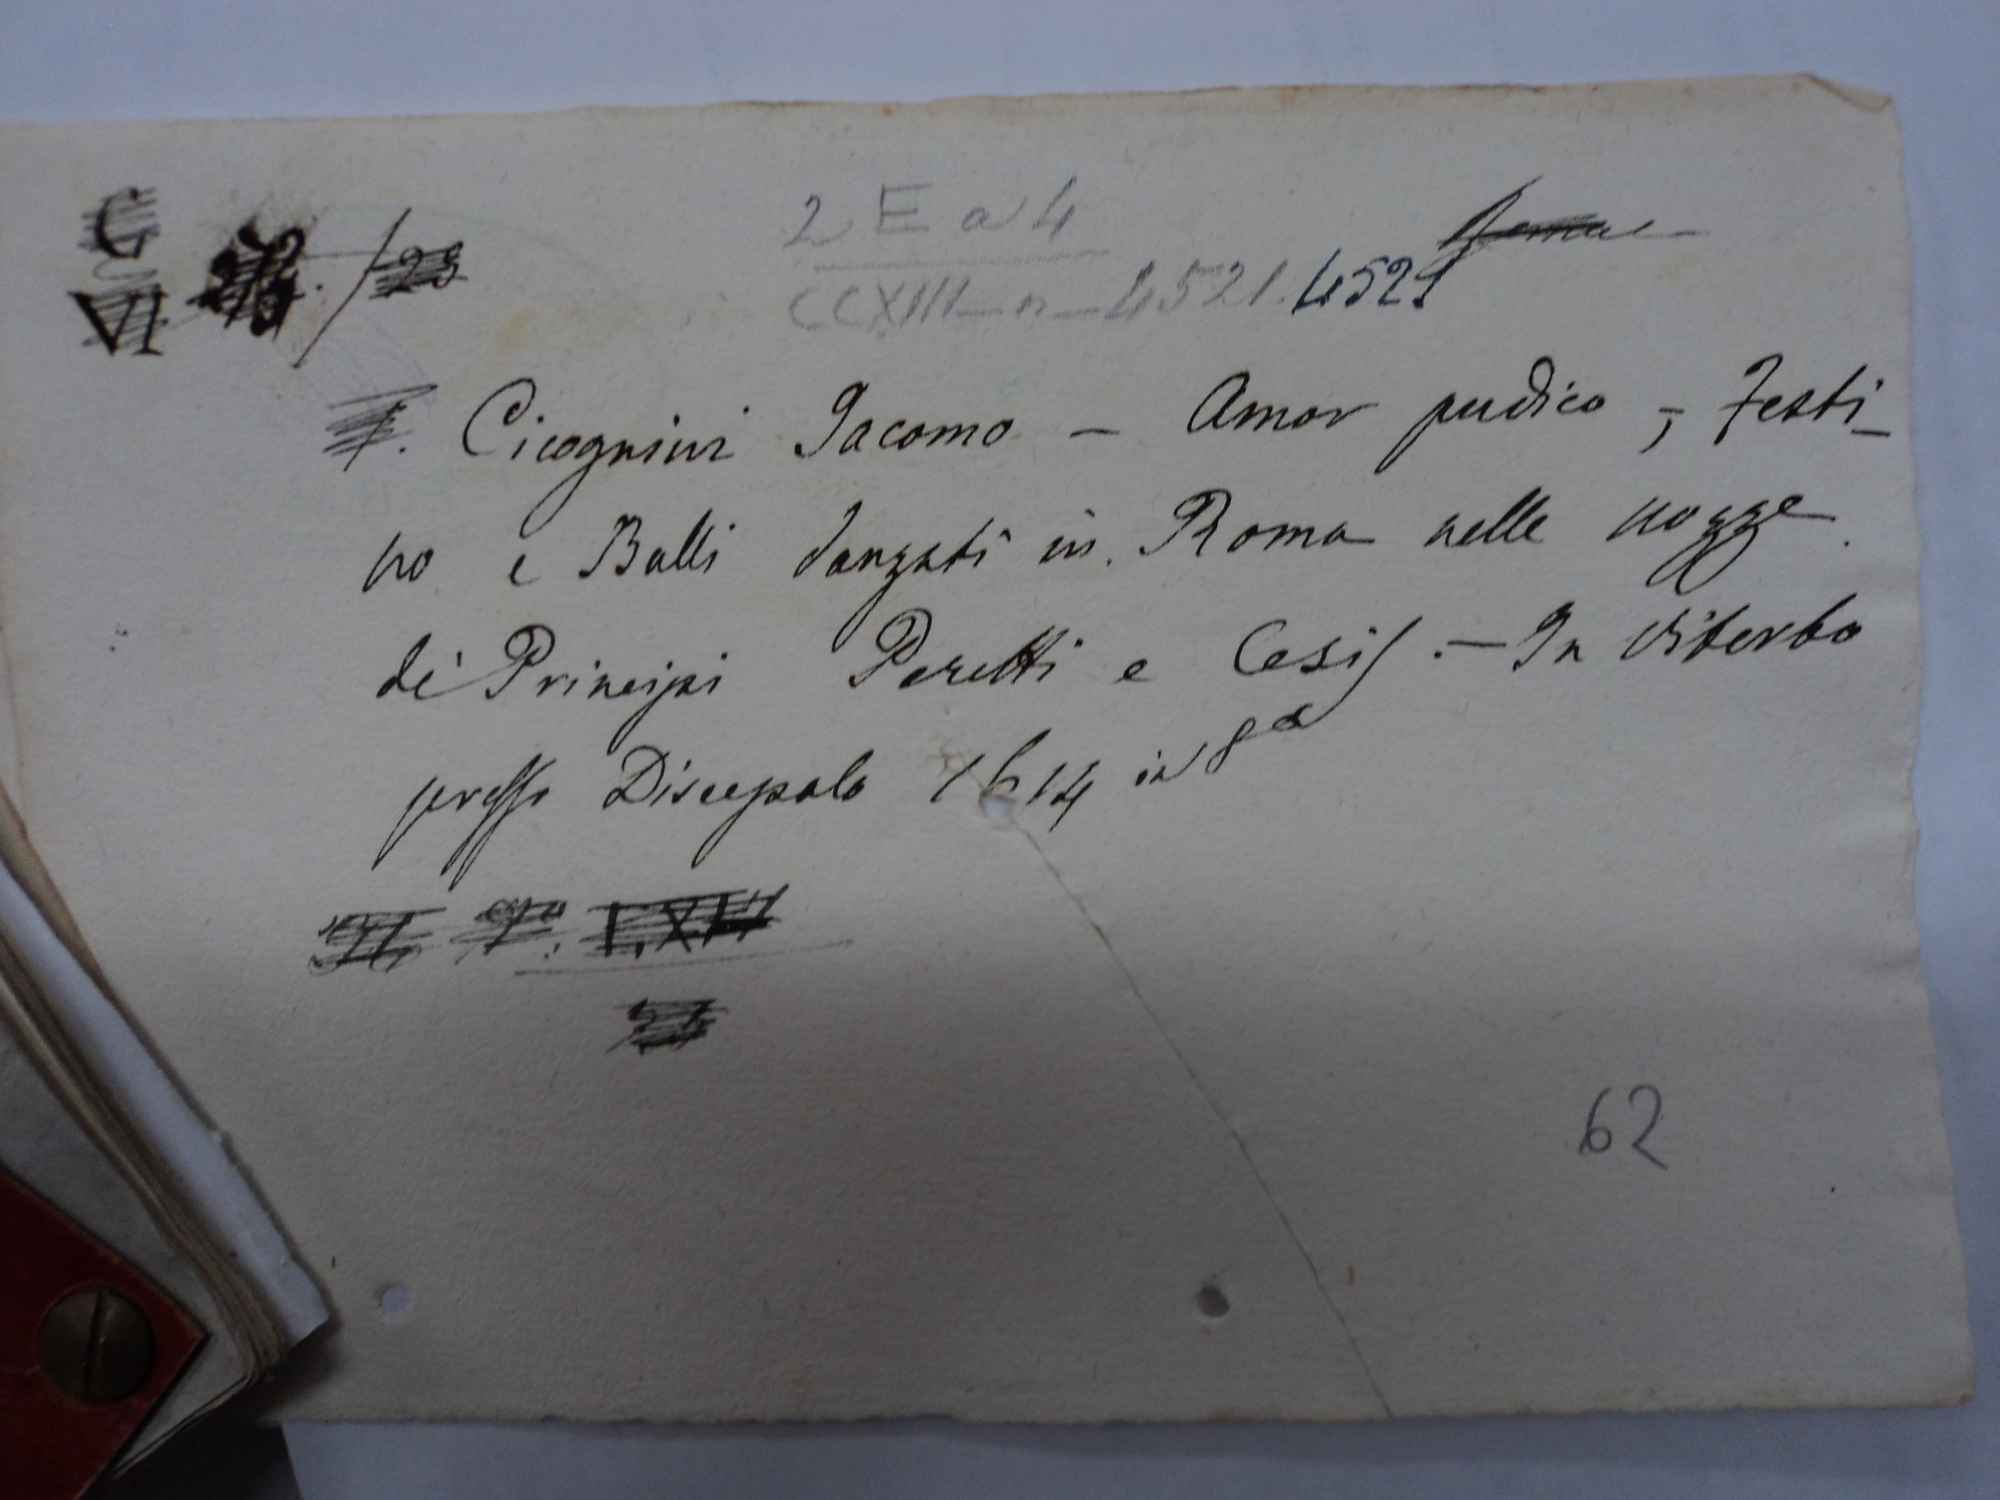 C
VI
/23
2 E a 4
CCXIII - n - 4521. 4521
Cicognini Jacomo - Amor pudico, Festi-
no e Balli danzati in Roma nelle nozze
di Principi Peretti e Cesis. - In Viterbo
presso Discepolo 1614 in 8º
62